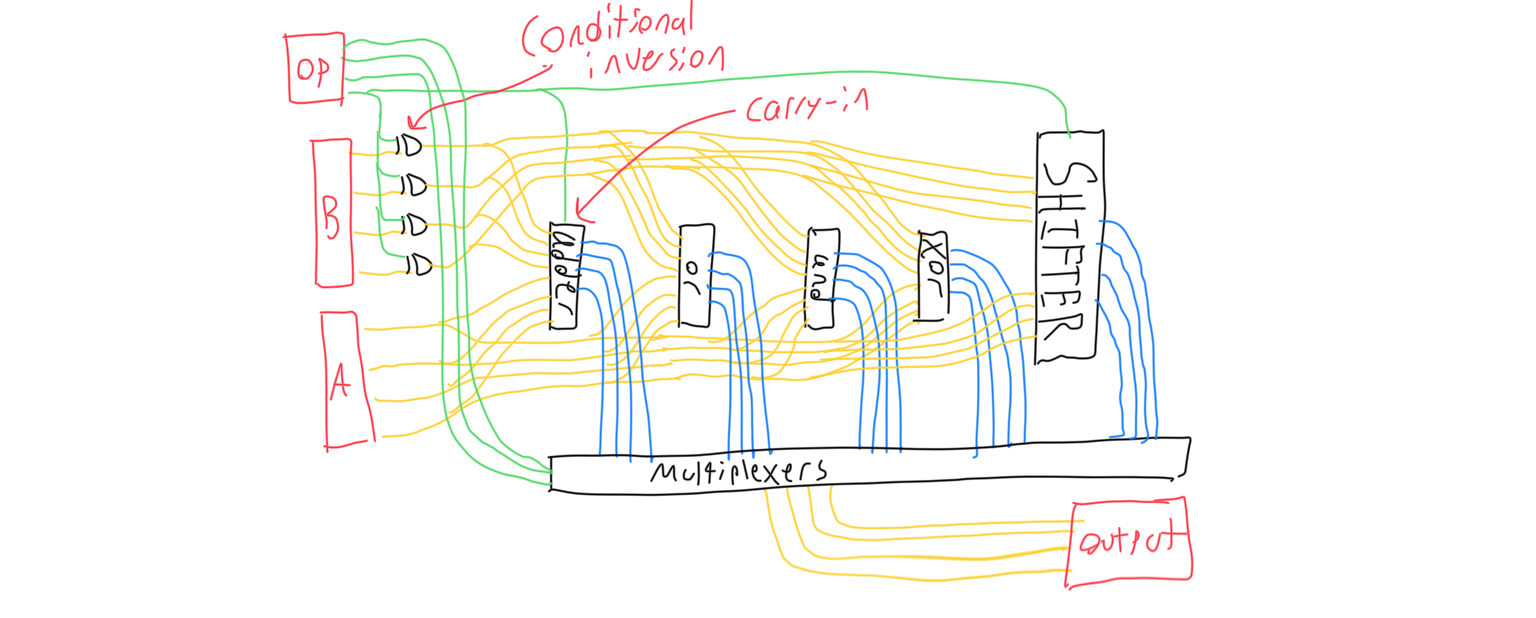 Conditional
inversion
OP
Carry-in
B
A
adder
or
and
xor
SHIFTER
Multiplexers
output